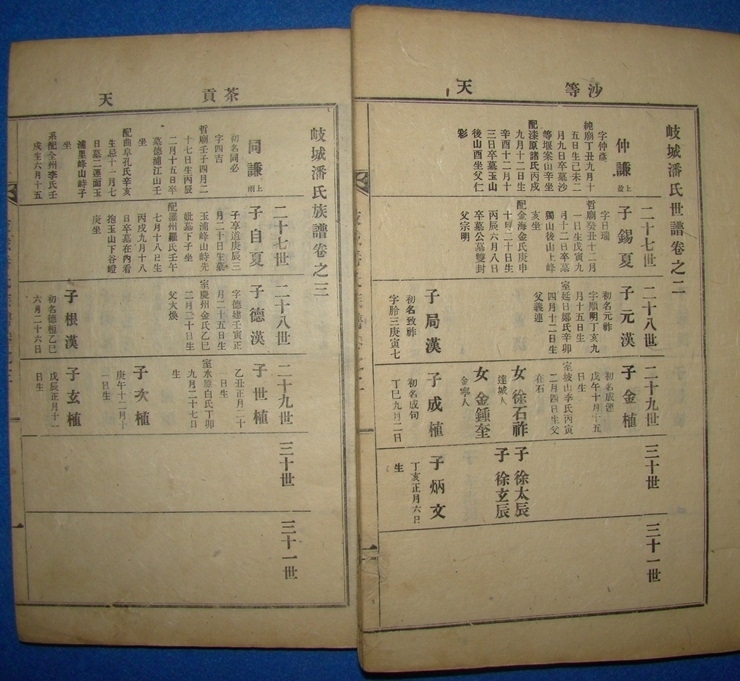 沙等
天
岐城潘氏世譜卷之二
二十七世
二十八世
二十九世
三十世
三十一世
仲謙
字仲益
純廟丁丑九月十
五日生己未二
月九日卒墓沙
等堰案山辛坐
配漆原諸氏丙戌
九月十二日生
辛酉十二月八
三日卒墓玉山
後山酉坐父仁
彩
子錫夏
字日瑞
哲廟癸丑十二月
一日生戊寅九
月十二日卒墓
獨山後山上峰
亥坐
配金海金氏庚申
十月二十日生
丙辰六月八日
卒墓公墓雙封
父宗明
子元漢
初名元祚
字順明丁亥九
月十五日生
室延日鄭氏辛卯
四月十二日生
父義連
子局漢
初名致祚
字胎三庚寅七
子金植
初名成運
戊午十月十五
日生
室坡山李氏丙寅
二月四日生父
在石
女徐石祚
達城人
女金鍾奎
金寧人
子成植
初名成旬
丁巳九月二日
子徐太辰
子徐玄辰
子炳文
丁亥正月六日
生
一
茶貢
天
岐城潘氏族譜卷之三
二十七世
二十八世
二十九世
三十世
三十一世
同謙
初名同必
字四吉
哲廟壬子四月二
十七日生丙辰
二月十五日卒
墓德浦江山壬
坐
配曲阜孔氏辛亥
生忌十一月七
日墓二運面玉
浦里峰山峙子
坐
系配全州李氏壬
戌生六月十五
子自夏
子享道庚辰三
月二十日生墓
玉浦峰山峙先
妣墓下子坐
配羅州羅氏壬午
七月十八日生
丙戌九月十八
日卒墓在內看
抱玉山下谷嶝
庚坐
子德漢
字德建壬寅正
月二十五日生
室慶州金氏乙巳
二月二十日生
父大煥
子根漢
初名德極乙巳
六月二十六日
子世植
乙丑正月二十
日生
室水原白氏丁卯
九月二十七日
生
子次植
庚午十二月十
一日生
子玄植
戊辰正月十一
日生
一